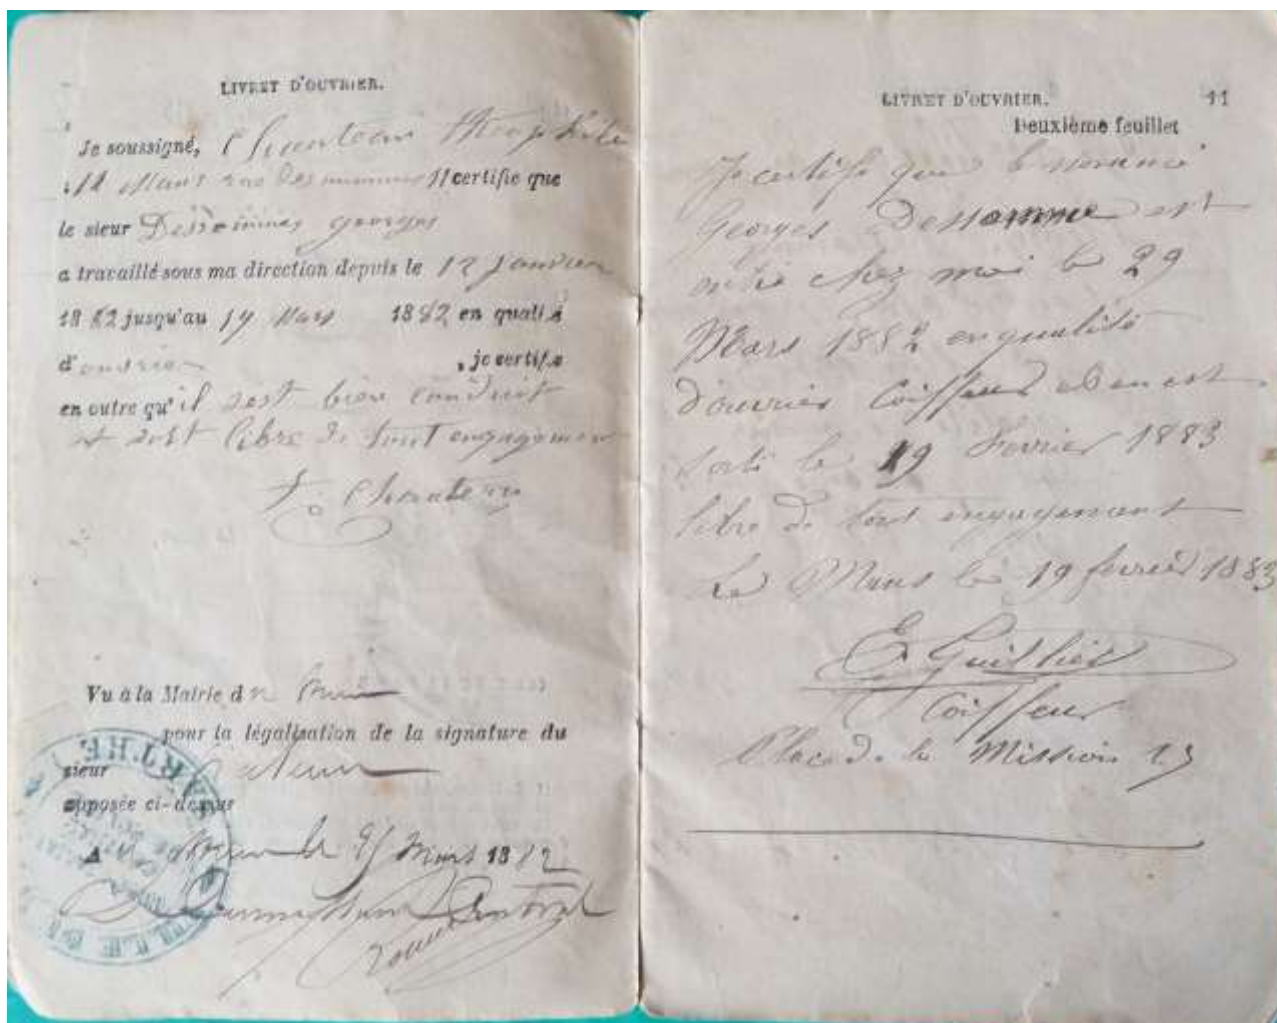 LIVRET D'OUVRIER.
Je soussigné, Chanteau Théophile
Mans rue des minimes 11 certifie que
le sieur Dessommes georges
a travaillé sous ma direction depuis le 12 Janvier
1882 jusqu'au 14 Mars 1882 en qualité
d'ouvrier , je certifie
en outre qu'il sest bien conduit
et sort libre de tout engagement
Vu à la Mairie d
pour la légalisation de la signature du
sieur
apposée ci-dessus
Mars 1882
Central
SARTHE
LIVRET D'OUVRIER. 11
Deuxième feuillet
Je certifie que le nommé
Georges Dessomme est
entré chez moi le 29
Mars 1882 en qualité
d'ouvrier Coiffeur et en est
sorti le 19 Fevrier 1883
libre de tout engagement
Le Mans le 19 fevrier 1883
E Guillier
Coiffeur
Place de la Mission 13